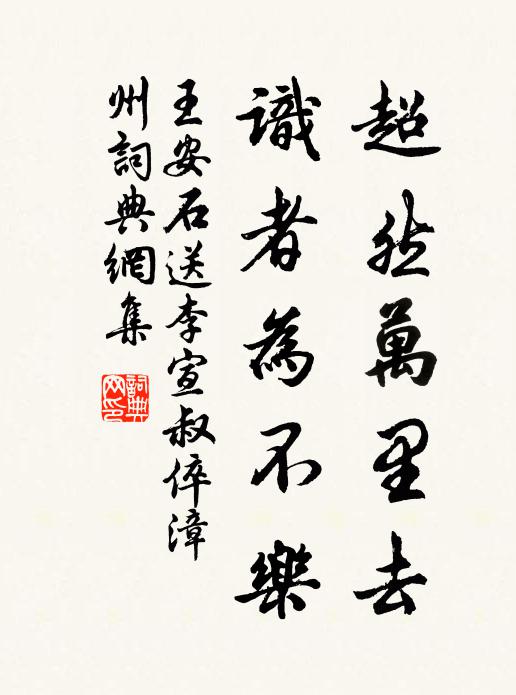 超然萬里去
識者為不樂
王安石送李宣叔倅漳
州詞典網集
詞典
网印